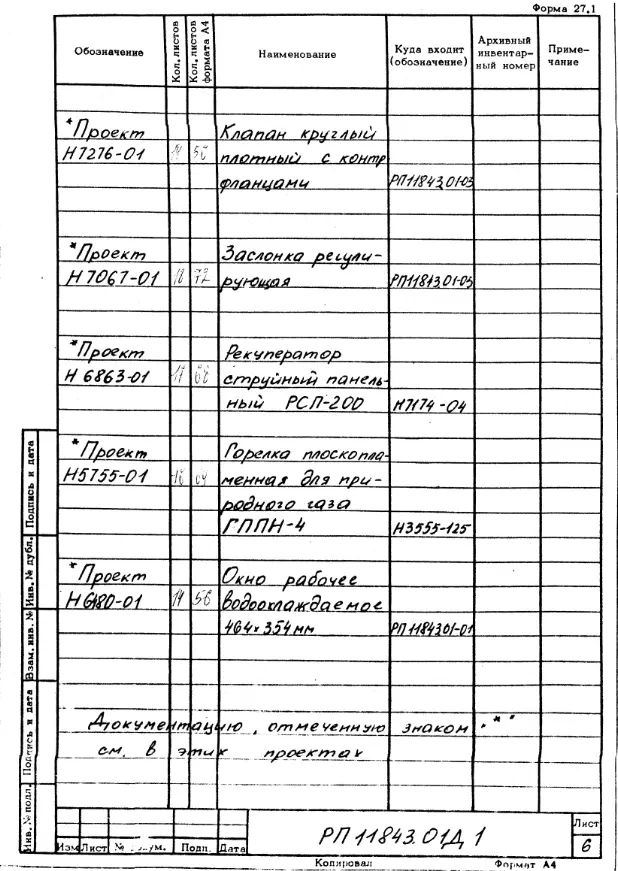 Форма 27.1
Обозначение Кол. листов Кол. листов формата А4 Наименование Куда входит (обозначение) Архивный инвентар-ный номер Приме-чание
*Проект Клапан круглый
Н7276-01 плотный с контр
фланцами РП11843.01-03
*Проект Заслонка регули-
Н7067-01 18 72 рующая РП11843.01-05
*Проект Рекуператор
Н6863-01 струйный панель-
ный РСП-200 Н7174-04
*Проект Горелка плоскопла-
Н5755-01 менная для при-
родного газа
ГППН-4 Н3555-125
*Проект Окно рабочее
Н6180-01 14 56 водоохлаждаемое
464×354мм РП11843.01-01
Документацию, отмеченную знаком "*"
см. в этих проектах
Инв.№ подл. Подпись и дата Взам. инв. № Инв. № дубл. Подпись и дата
Изм Лист Подп. Дата
РП 11843.01Д1
Лист
6
Копировал Формат А4